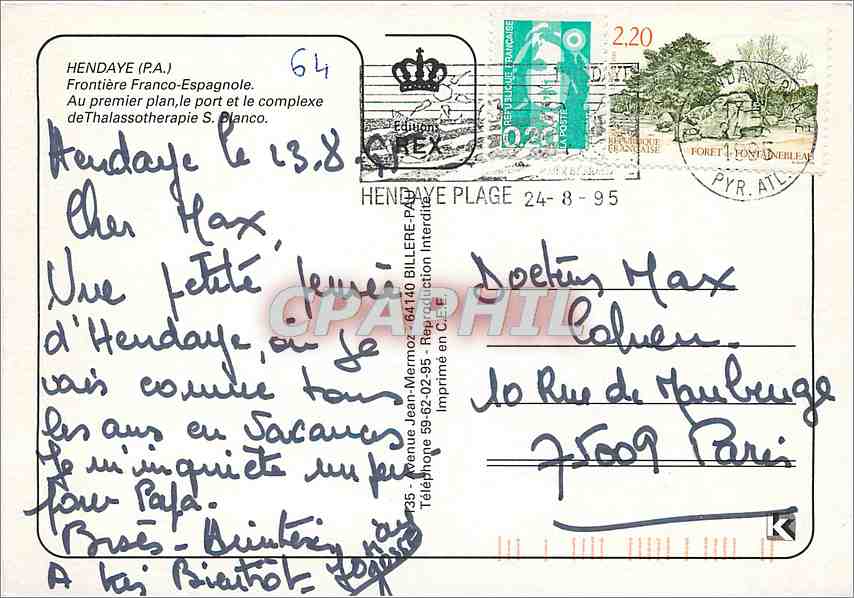 HENDAYE (P.A.)
Frontière Franco-Espagnole.
Au premier plan, le port et le complexe
de Thalassotherapie S. Blanco.
64
Editions
REX
REPUBLIQUE FRANÇAISE
0,20
LA POSTE
2,20
REPUBLIQUE
FRANÇAISE
FORET - FONTAINEBLEAU
HENDAYE
PYR. ATL.
HENDAYE PLAGE 24-8-95
Hendaye le 23.8.
Cher Max,
Une petite pensée
d'Hendaye, où je
vais comme tous
les ans en vacances
Je m'inquiète un peu
pour Papa.
Bises -
A très Bientôt
135 - Avenue Jean-Mermoz - 64140 BILLERE-PAU
Téléphone 59-62-02-95 - Reproduction Interdite
Imprimé en C.E.E.
Docteur Max
Cohen
10 Rue de Maubeuge
75009 Paris
K
CPAPHIL